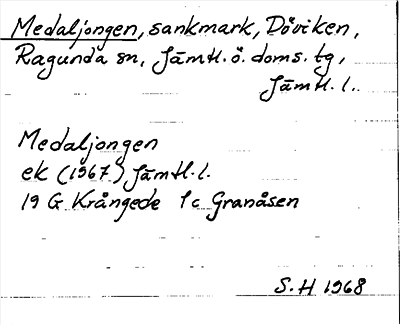 Medaljongen, sankmark, Döviken,
Ragunda sn, Jämtl. ö. doms. tg,
Jämtl. l.
Medaljongen
ek (1967) Jämtl. l.
19 G Krångede 1c Granåsen
S. H 1968